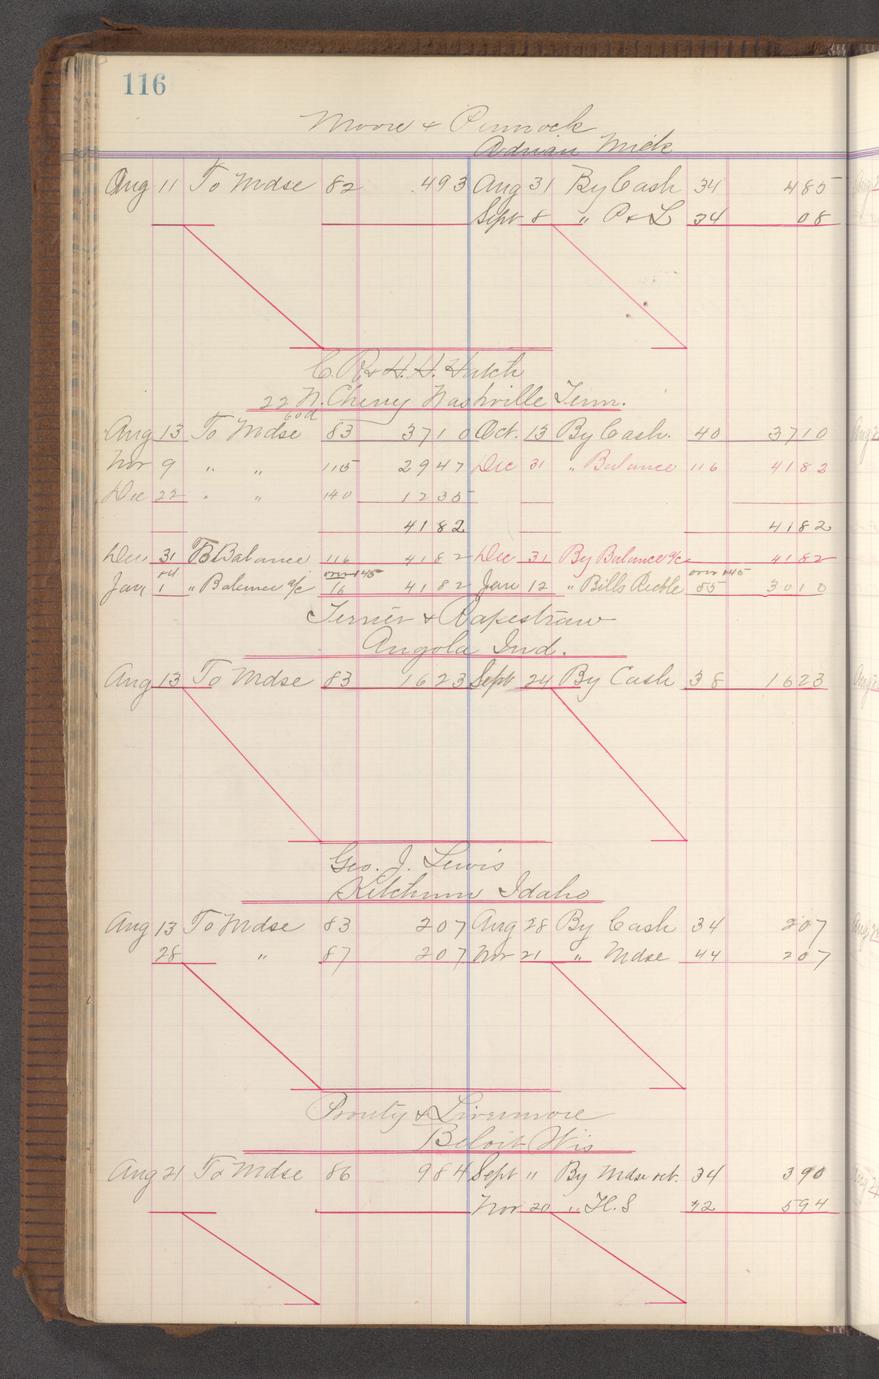 116
Moore & Pinnock
Adrian Mich
Aug 11 To Mdse 82 4 93 Aug 31 By Cash 34 4 85
Sept 8 " P & L 34 08
C. R. & H. H. Hatch
22 N. Cherry Nashville Tenn.
60d
Aug 13 To Mdse 83 37 10 Oct. 13 By Cash. 40 37 10
Nov 9 " " 115 29 47 Dec 31 " Balance 116 41 82
Dec 22 " " 140 12 35
41 82 41 82
Dec 31 To Balance 116 41 82 Dec 31 By Balance a/c 41 82
Jan 1 " Balance a/c 16 41 82 Jan 12 " Bills Recble 85 30 10
& Rapestraw
Angola Ind.
Aug 13 To Mdse 83 16 23 Sept 24 By Cash 38 16 23
Geo. J. Lewis
Ketchum Idaho
Aug 13 To Mdse 83 2 07 Aug 28 By Cash 34 2 07
28 " 87 2 07 Nov 21 " Mdse 44 2 07
Prouty & Livermore
Beloit Wis
Aug 21 To Mdse 86 9 84 Sept " By Mdse ret. 34 3 90
Nov 20 " H. S 42 5 94